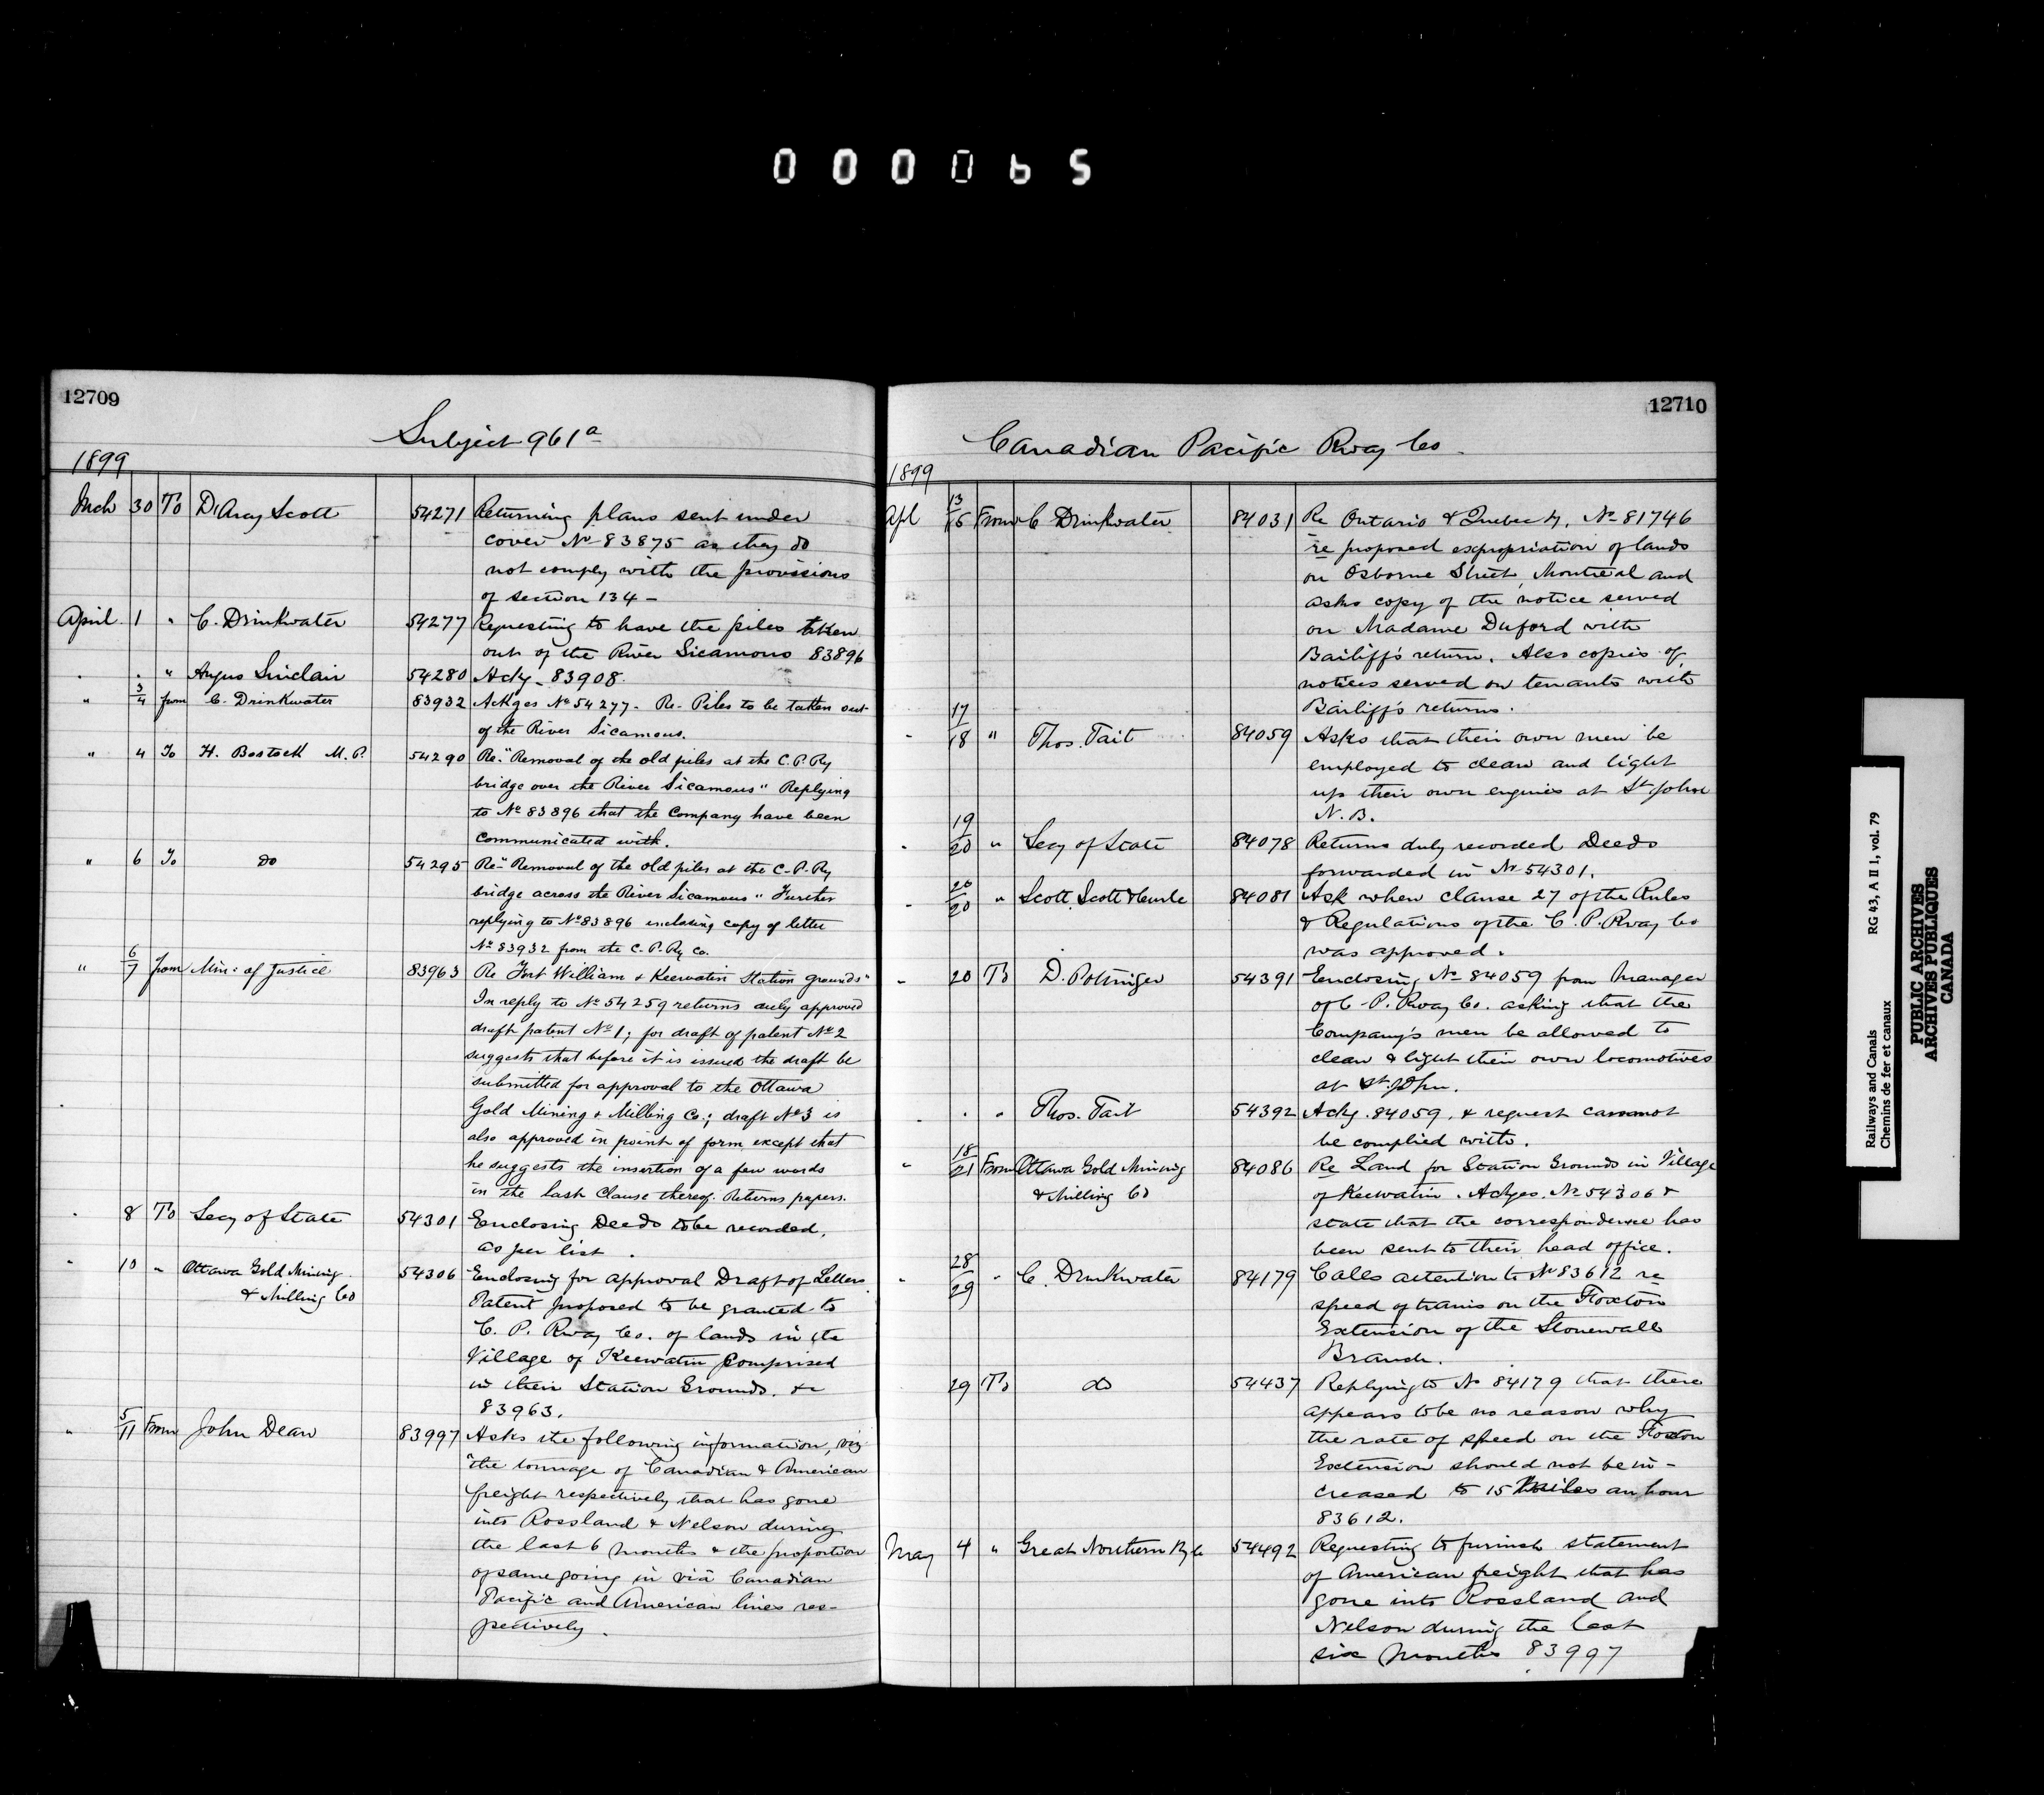 000065
12709
Subject 961a
1899
Mch 30 To D'Arcy Scott 54271 Returning plans sent under
cover No 83875 as they do
not comply with the provisions
of section 134 -
April 1 " C. Drinkwater 54277 Requesting to have the piles taken
out of the River Sicamous 83896
" " " Angus Sinclair 54280 Ackg. 83908.
" 3/4 from C. Drinkwater 83932 Ackges No 54277 - Re- Piles to be taken out
of the River Sicamous.
" 4 To H. Bostock M.P. 54290 Re- "Removal of the old piles at the C.P.Ry
bridge over the River Sicamous" Replying
to No 83896 that the Company have been
communicated with.
" 6 To do 54295 Re- "Removal of the old piles at the C-P-Ry
bridge across the River Sicamous" Further
replying to No 83896 enclosing copy of letter
No 83932 from the C.P.Ry Co.
" 6/7 from Min: of Justice 83963 Re Fort William & Keewatin Station grounds"
In reply to No 54259 returns duly approved
draft patent No 1; for draft of patent No 2
suggests that before it is issued the draft be
submitted for approval to the Ottawa
Gold Mining & Milling Co.; draft No 3 is
also approved in point of form except that
he suggests the insertion of a few words
in the last Clause thereof. Returns papers.
" 8 To Secy of State 54301 Enclosing Deeds to be recorded,
as per list.
" 10 " Ottawa Gold Mining
& Milling Co 54306 Enclosing for approval Draft of Letters
Patent proposed to be granted to
C. P. Rway Co. of lands in the
Village of Keewatin Comprised
in their Station Grounds. &c
83963.
" 5/11 From John Dean 83997 Asks the following information, viz
"the tonnage of Canadian & American
freight respectively that has gone
into Rossland & Nelson during
the last 6 months & the proportion
of same going in via Canadian
Pacific and American lines res-
pectively.
12710
Canadian Pacific Rway Co.
1899
Apl 13/15 From C Drinkwater 84031 Re Ontario & Quebec Ry. No 81746
re proposed expropriation of lands
on Osborne Street, Montreal and
asks copy of the notice served
on Madame Duford with
Bailiff's return. Also copies of
notices served on tenants with
Bailiff's returns.
" 17/18 " Thos. Tait 84059 Asks that their own men be
employed to clean and light
up their own engines at St. John
N.B.
" 19/20 " Secy of State 84078 Returns duly recorded Deeds
forwarded in No 54301.
" 20/20 " Scott, Scott & Curle 84081 Ask when clause 27 of the Rules
& Regulations of the C. P. Rway Co
was approved.
" 20 To D. Pottinger 54391 Enclosing No 84059 from Manager
of C-P. Rway Co. asking that the
Company's men be allowed to
clean & light their own locomotives
at St. John.
" " Thos. Tait 54392 Ackg. 84059, & request cannot
be complied with.
" 18/21 From Ottawa Gold Mining
& Milling Co 84086 Re Land for Station Grounds in Village
of Keewatin. Ackges. No 54306 &
state that the correspondence has
been sent to their head office.
" 28/29 " C. Drinkwater 84179 Calls attention to No 83612 re
speed of trains on the Foxton
Extension of the Stonewall
Branch.
29 To do 54437 Replying to No 84179 that there
appears to be no reason why
the rate of speed on the Foxton
Extension should not be in-
creased to 15 Miles an hour
83612.
May 4 " Great Northern Ry Co 54492 Requesting to furnish statement
of American freight that has
gone into Rossland and
Nelson during the last
six months 83997
Railways and Canals RG 43, A II 1, vol. 79
Chemins de fer et canaux
PUBLIC ARCHIVES
ARCHIVES PUBLIQUES
CANADA